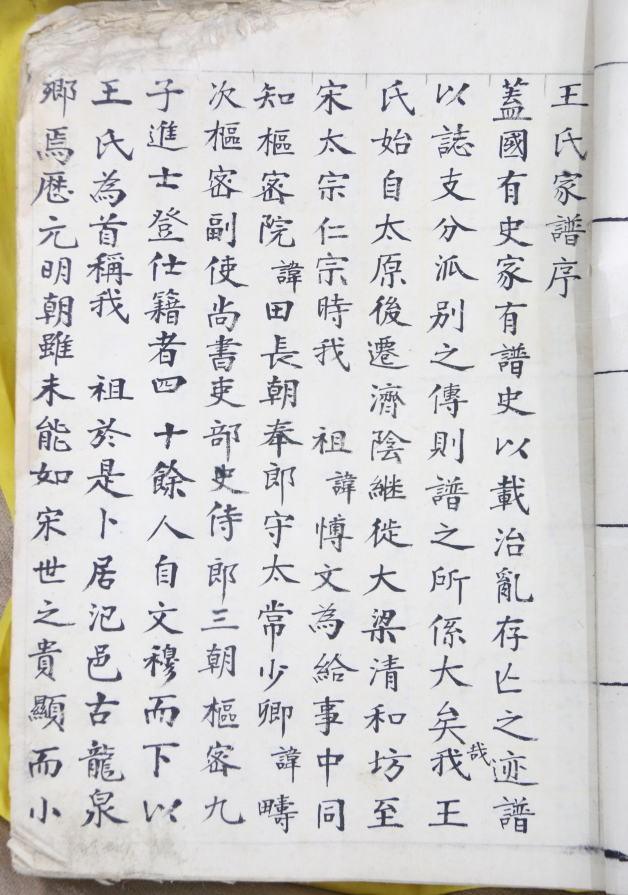 王氏家譜序
蓋國有史家有譜史以載治亂存亾之迹譜
以誌支分派别之傳則譜之所係大矣哉我王
氏始自太原後遷濟陰継徙大梁清和坊至
宋太宗仁宗時我 祖諱愽文為給事中同
知樞密院諱田長朝奉郎守太常少卿諱疇
次樞密副使尚書吏部史侍郎三朝樞密九
子進士登仕籍者四十餘人自文穆而下以
王氏為首稱我 祖於是卜居汜邑古龍泉
鄉焉厯元明朝雖未能如宋世之貴顯而小